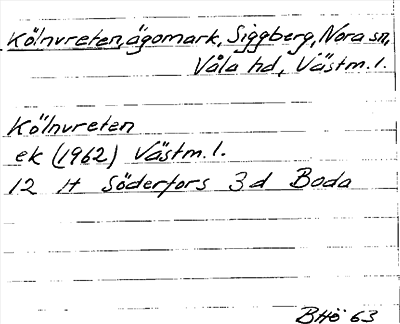 Kölnvreten, ägomark, Siggberg, Nora sn,
Våla hd, Västm. l.
Kölnvreten
ek (1962) Västm. l.
12 H Söderfors 3d Boda
BHö 63